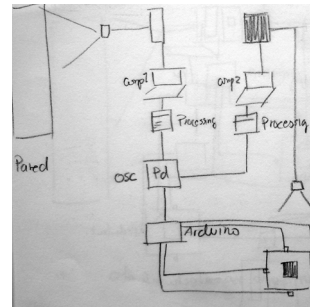 comp1
comp2
Processing
Processing
Pared
OSC
Pd
Arduino